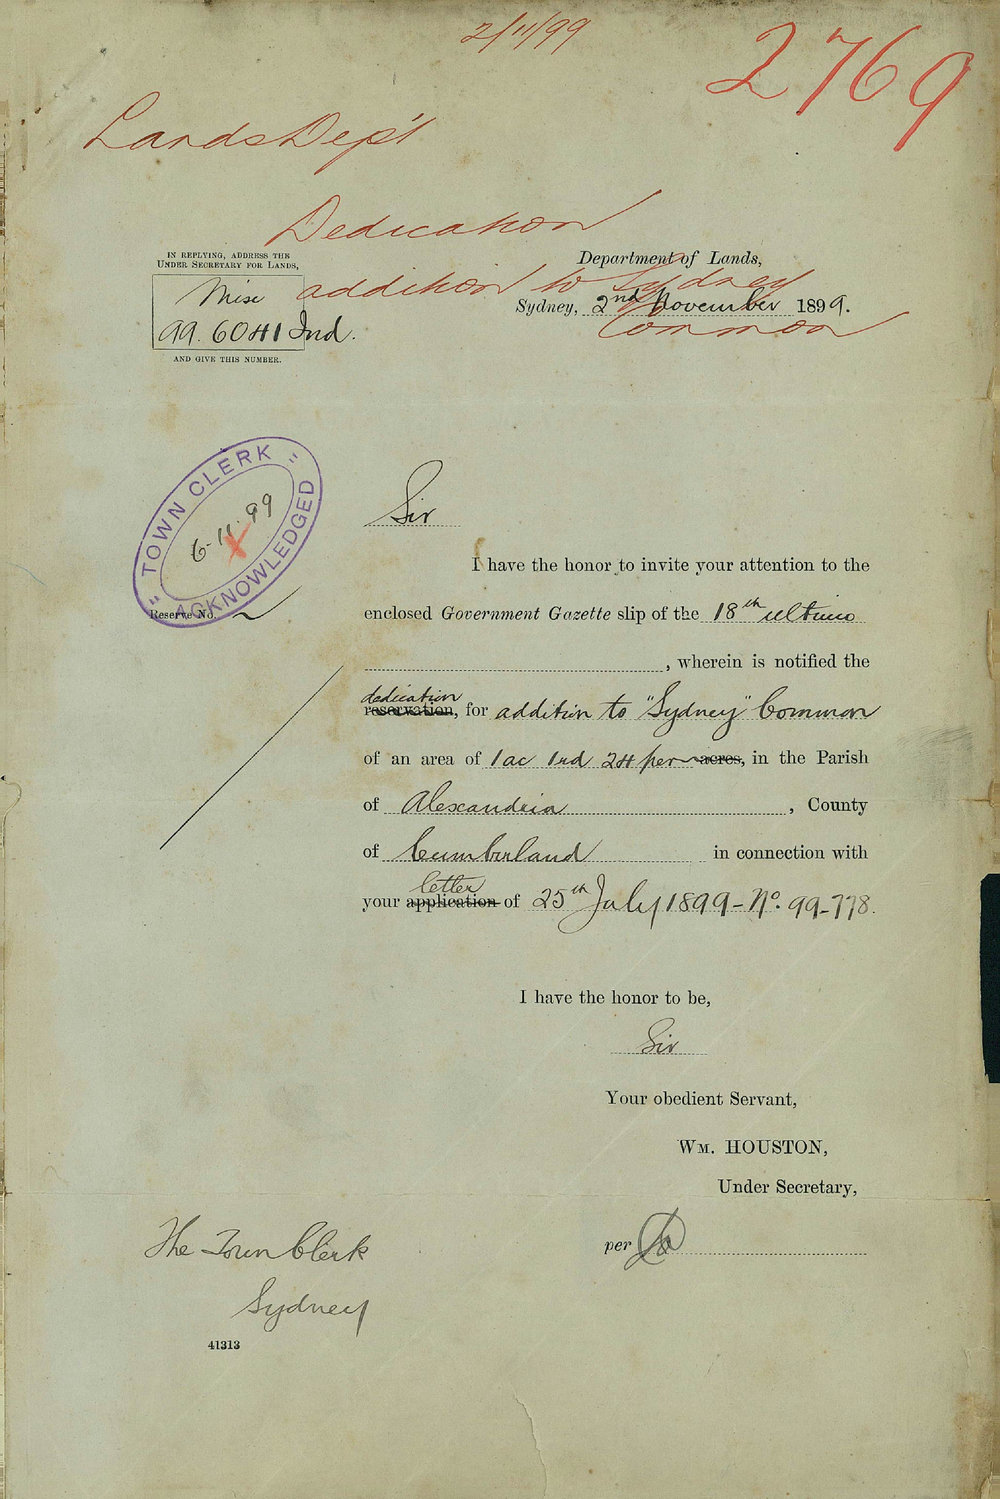 2/11/99
2769
Lands Dep't
Dedication
addition to Sydney
Common
IN REPLYING, ADDRESS THE
UNDER SECRETARY FOR LANDS,
Misc
99. 6041 Ind.
AND GIVE THIS NUMBER.
Department of Lands,
Sydney, 2nd November 1899.
"TOWN CLERK"
6-11-99
ACKNOWLEDGED
Reserve No.
Sir
I have the honor to invite your attention to the
enclosed Government Gazette slip of the 18th ultimo
, wherein is notified the
dedication
reservation, for addition to "Sydney" Common
of an area of 1ac 1rd 24 per acres, in the Parish
of Alexandria, County
of Cumberland in connection with
letter
your application of 25th July 1899 - No. 99-778.
I have the honor to be,
Sir
Your obedient Servant,
WM. HOUSTON,
Under Secretary,
per
The Town Clerk
Sydney
41313